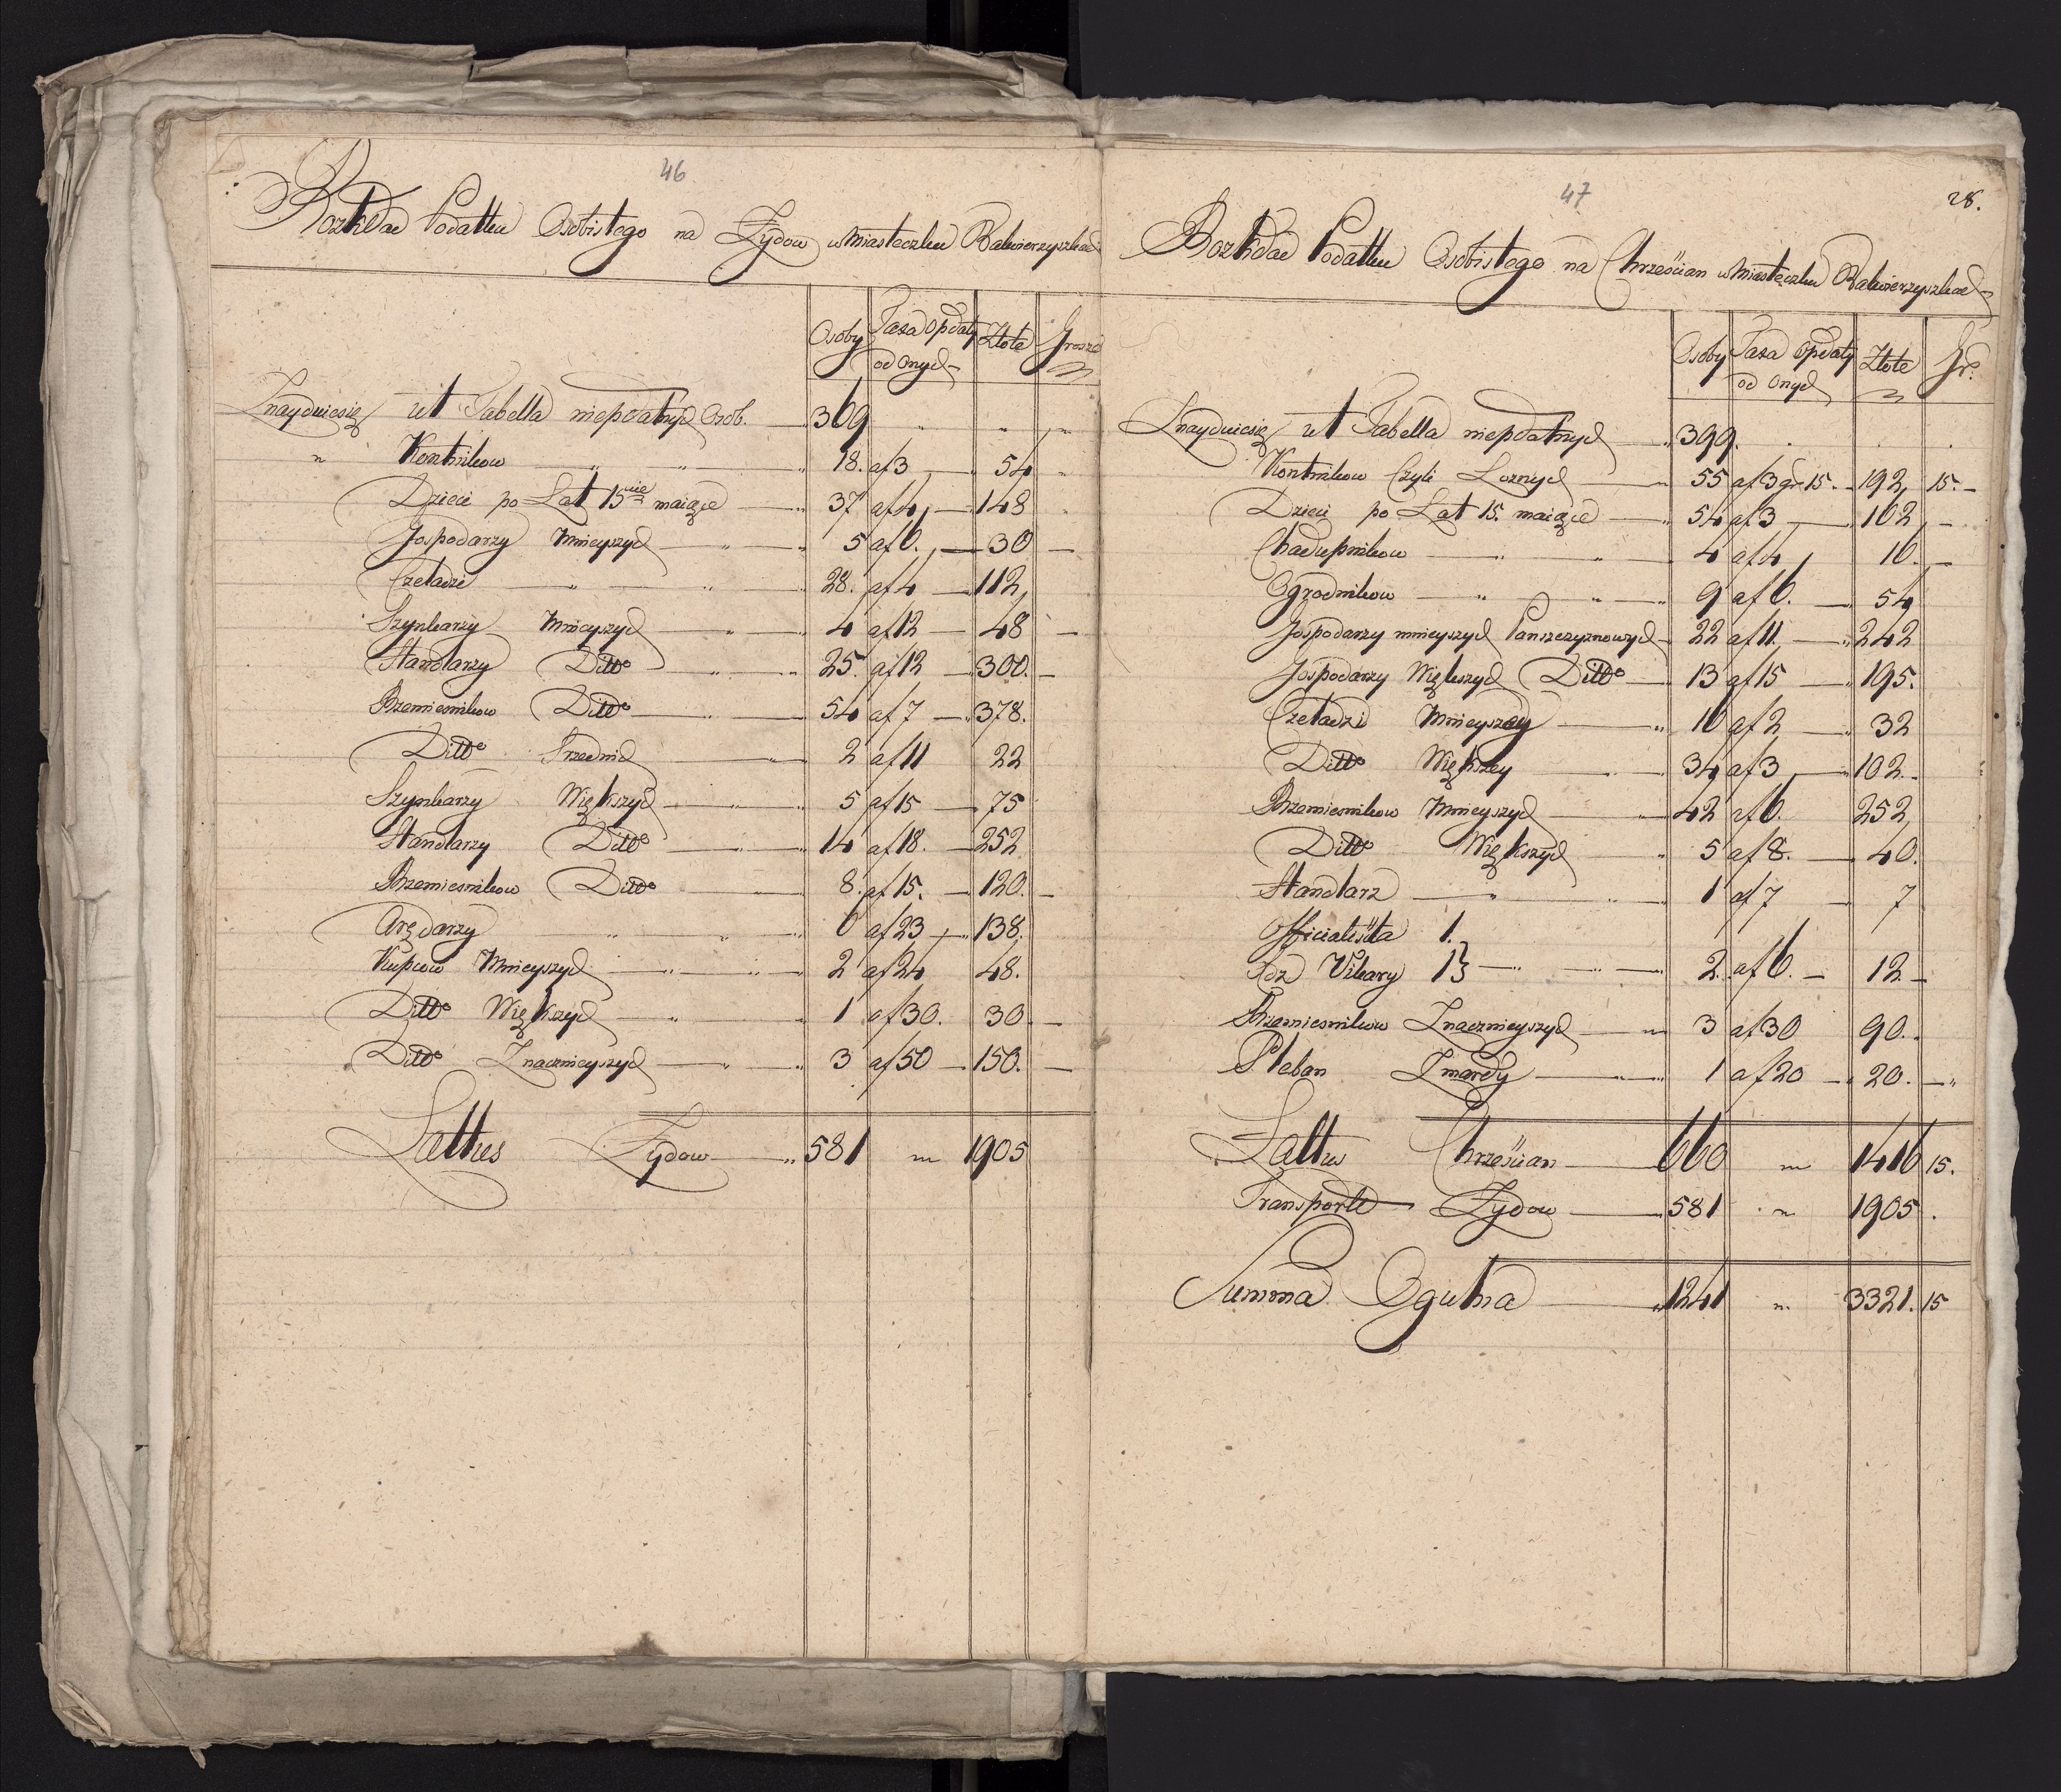 46
Rozkład Podatku Osobistego na Żydow w Miasteczku Balwierzyszkach
Osoby Taxa Opłaty od onych Złote Grosze
Znayduiesię ut Tabella niepłatnych Osob. 369
" Kontnikow 18. af 3 54
Dzieci po Lat 15cie maiące 37 af 4 148
Gospodarzy Mnieyszych 5 af 6. 30
Czeladzi 28. af 4 112
Szynkarzy Mnieyszych 4 af 12 48
Handlarzy Ditto 25. af 12 300.
Rzemiesnikow Ditto 54 af 7 378.
Ditto Srednich 2 af 11 22
Szynkarzy Większych 5 af 15 75
Handlarzy Ditto 14 af 18. 252
Rzemiesnikow Ditto 8. af 15. 120.
Arędarzy 6 af 23 138.
Kupcow Mnieyszych 2 af 24 48.
Ditto Większych 1 af 30. 30
Ditto Znacznieyszych 3 af 50 150.
Lattus Żydow 581 1905
47
28.
Rozkład Podatku Osobistego na Chrześcian w Miasteczku Balwierzyszkach
Osoby Taxa Opłaty od onych Złote Gr.
Znayduiesię ut Tabella niepłatnych 399.
Kontnikow Czyli Loznych 55 af 3 gr 15. 192 15.
Dzieci po Lat 15. maiące 54 af 3 162
Chałupnikow 4 af 4 16.
Ogrodnikow 9 af 6. 54
Gospodarzy mnieyszych Panszczyznowych 22 af 11. 242
Gospodarzy Większych Ditto 13 af 15 195.
Czeladzi Mnieyszey 16 af 2 32
Ditto Większey 34 af 3 102.
Rzemiesnikow Mnieyszych 42 af 6. 252
Ditto Większych 5 af 8. 40.
Handlarz 1 af 7 7
Officialista 1.
Vikary 1} 2. af 6. 12.
Rzemiesnikow Znacznieyszych 3 af 30 90.
Pleban Zmardy 1 af 20 20.
Lattus Chrześcian 660 1416 15.
Transporte Żydow 581 1905.
Summa Ogulna 1241 3321. 15